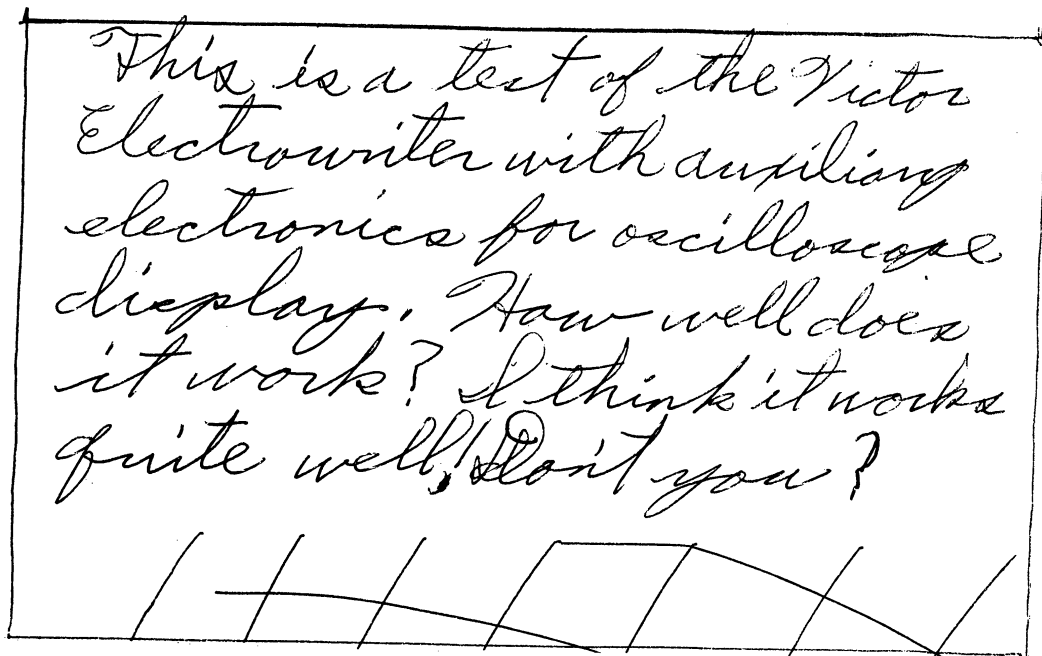 This is a test of the Victor
Electrowriter with auxiliary
electronics for oscilloscope
display. How well does
it work? I think it works
quite well! Don't you?